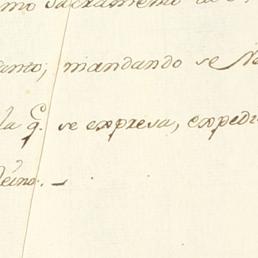 mo Sacramento de
anto, mandando se
la q. se expresa, expedi
eino. _